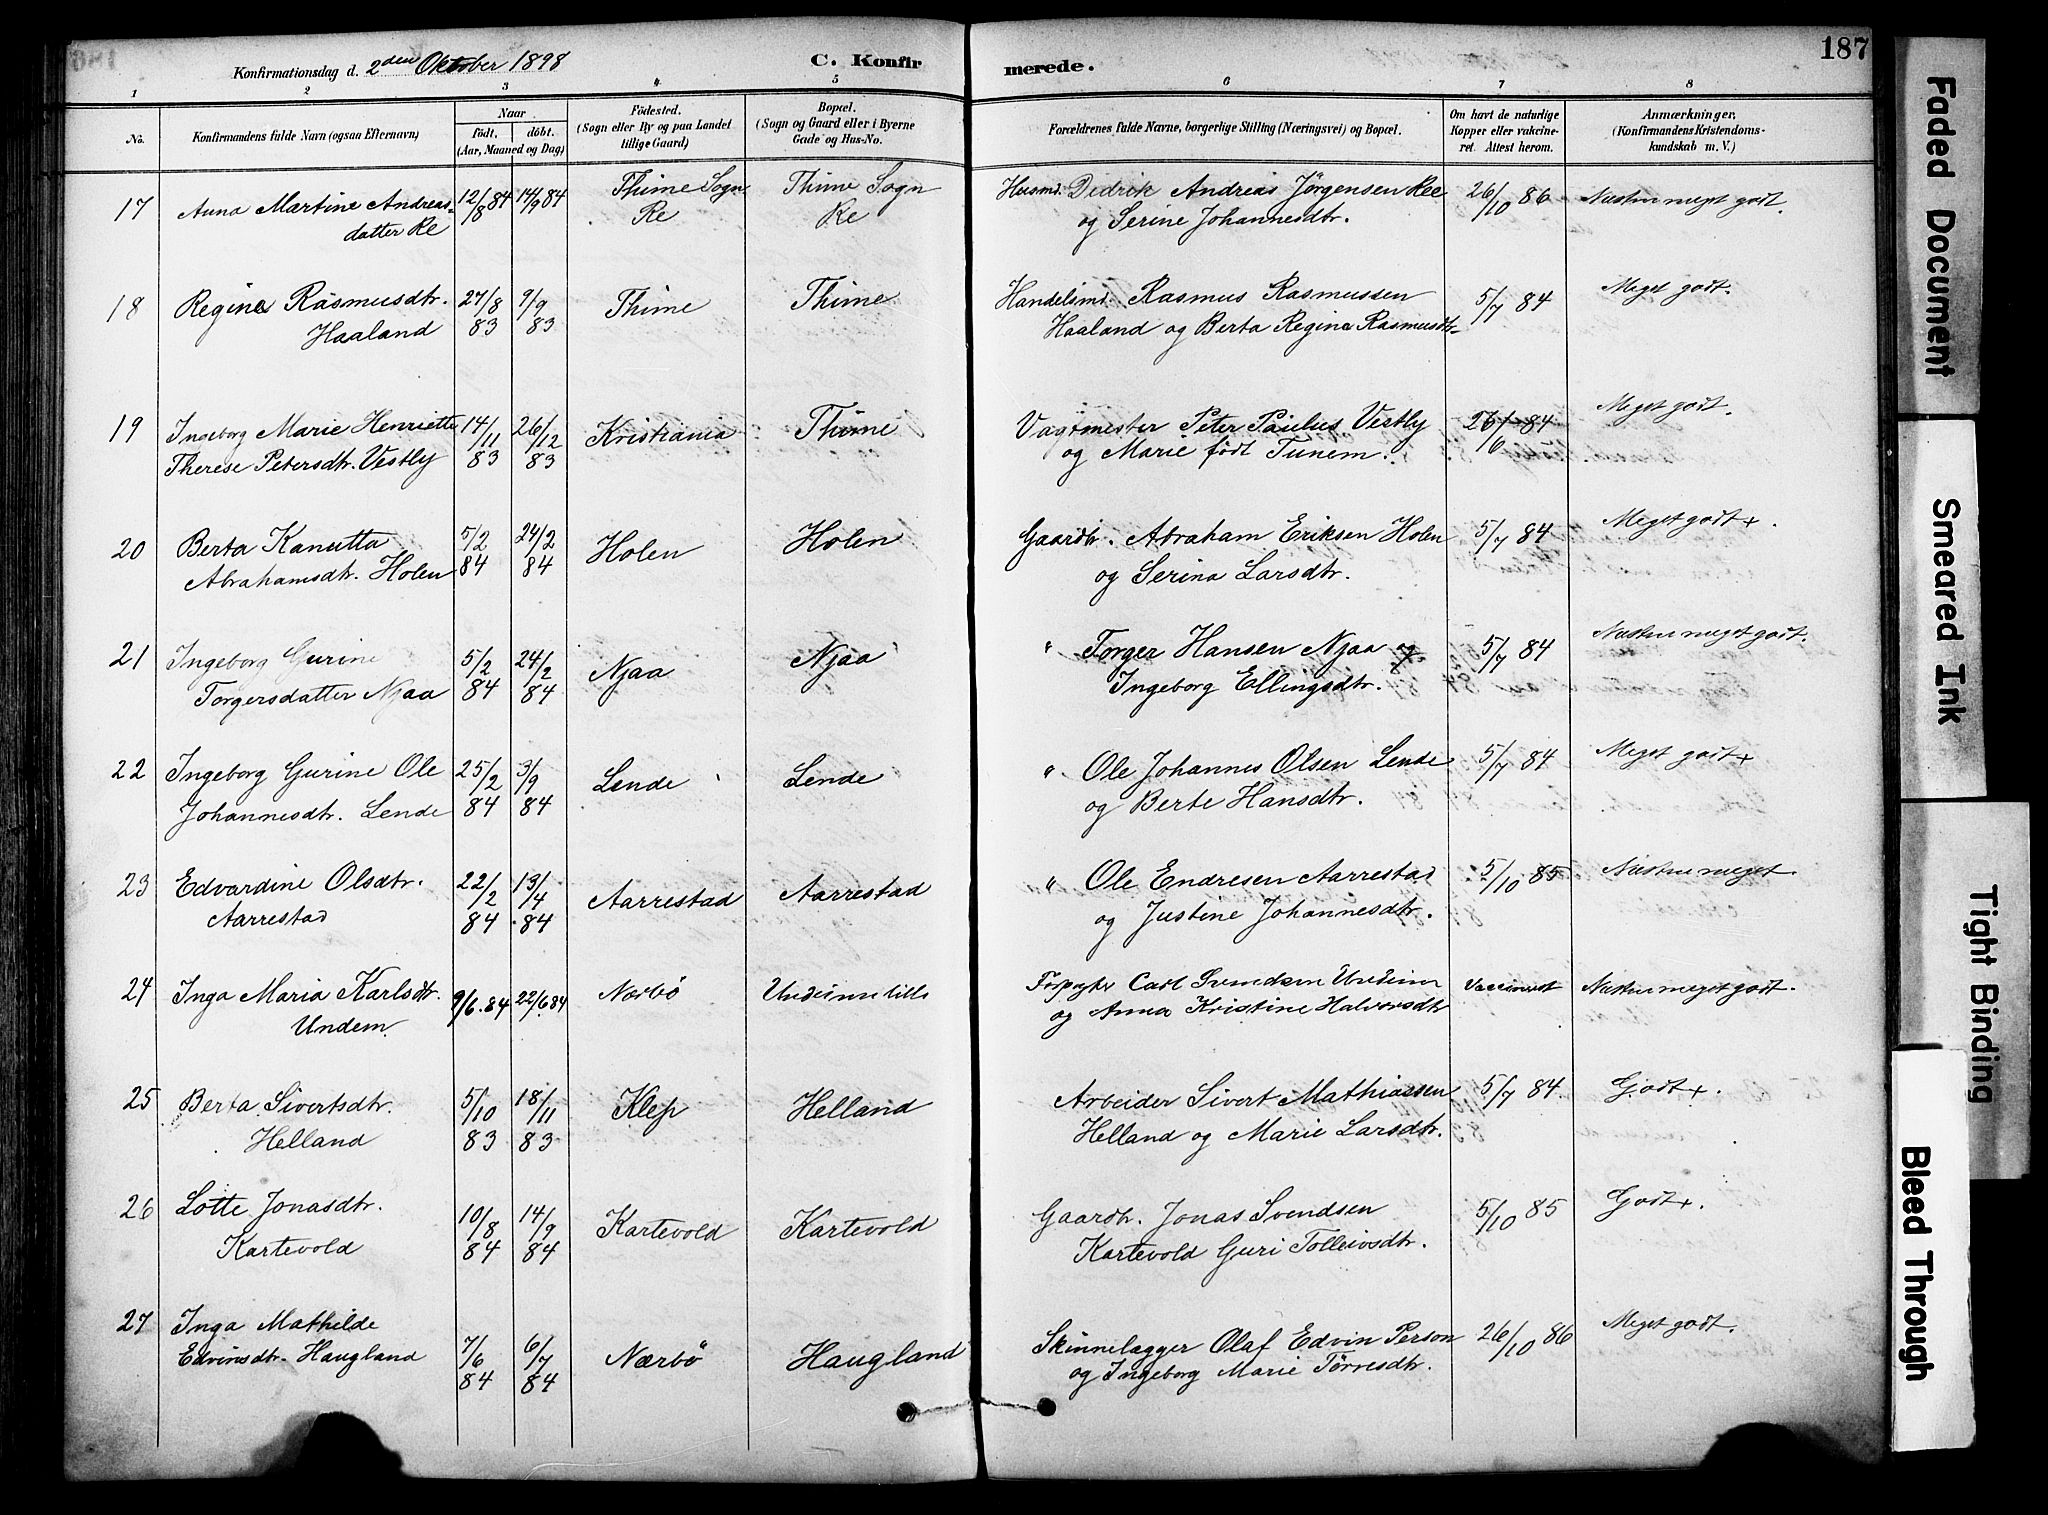 Konfirmationsdag d. 2den Oktober 1898
C. Konfirmerede.
187
1 2 3 4 5 6 7 8
No.
Konfirmandens fulde Navn (ogsaa Efternavn)
Naar
født, døbt.
(Aar, Maaned og Dag)
Fødested.
(Sogn eller By og paa Landet
tillige Gaard)
Bopæl.
(Sogn og Gaard eller i Byerne
Gade og Hus-No.
Forældrenes fulde Navne, borgerlige Stilling (Næringsvei) og Bopæl.
Om havt de naturlige
Kopper eller vakcine-
ret. Attest herom.
Anmærkninger,
(Konfirmandens Kristendoms-
kundskab m. V.)
17 Anna Martine Andreas- 12/8 84 14/9 84 Thime Sogn Thime Sogn Husmd. Dedrik Andreas Jörgensen Ree 26/10 86 Næsten meget godt.
datter Re Re Re og Serine Johannesdtr.
18 Regine Rasmusdtr. 27/8 9/9 Thime Thime Handelsmd. Rasmus Rasmussen 5/7 84 Meget godt.
Haaland 83 83 Haaland og Berta Regine Rasmusdtr-
19 Ingeborg Marie Henriette 14/11 26/12 Kristiania Thime Vagtmester Peter Paulus Vestly 26/6 84 Meget godt.
Therese Petersdtr. Vestly 83 83 og Marie födt Tunem.
20 Berta Kanutta 5/2 24/2 Holen Holen Gaardbr. Abraham Eriksen Holen 5/7 84 Meget godt +.
Abrahamsdtr. Holen 84 84 og Serina Larsdtr.
21 Ingeborg Gurine 5/2 24/2 Njaa Njaa " Torger Hansen Njaa og 5/7 84 Næsten meget godt.
Torgersdatter Njaa 84 84 Ingeborg Ellingsdtr.
22 Ingeborg Gurine Ole 25/2 3/9 Lende Lende " Ole Johannes Olsen Lende 5/7 84 Meget godt +
Johannesdtr. Lende 84 84 og Berte Hansdtr.
23 Edvardine Olsdtr. 22/2 13/4 Aarrestad Aarrestad " Ole Endresen Aarrestad 5/10 85 Næsten meget.
Aarrestad 84 84 og Justine Johannesdtr.
24 Inga Maria Karlsdtr. 9/6.84 22/6 84 Nærbö Carl Svendsen Undeim Næsten meget godt.
Undem og Anna Kristine Halvorsdtr
25 Berta Sivertsdtr. 5/10 18/11 Klep Helland Arbeider Sivert Mathiassen 5/7 84. Godt +.
Helland 83 83 Helland og Marie Larsdtr.
26 Lotte Jonasdtr. 10/8 14/9 Kartevold Kartevold Gaardbr. Jonas Svendsen 5/10 85 Godt +.
Kartevold 84 84 Kartevold Guri Tolleivsdtr.
27 Inga Mathilde 7/6 6/7 Nærbö Haugland Skinnelægger Olaf Edvin Person 26/10 86 Meget godt.
Edvinsdtr. Haugland 84 84 og Ingeborg Marie Törresdtr.
Faded Document
Smeared Ink
Tight Binding
Bleed Through